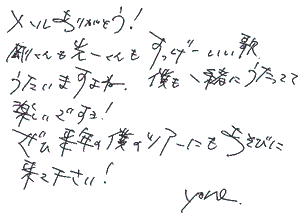 メールありがとう!
剛さんも光一さんもすっげーいい歌
うたいますよね。僕も一緒にうたってて
楽しいですよ!
ぜひ来年の僕のツアーにもあそびに
来て下さい!
yone.